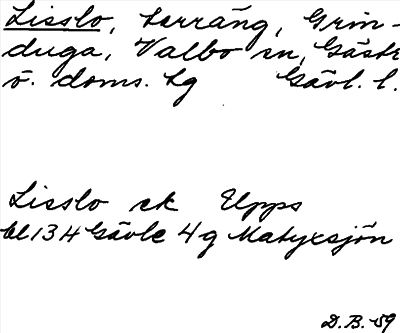 Lisslo, terräng, Grin-
duga, Valbo sn, Gästr
ö. doms. hg Gävl. l.
Lisslo ek Elpps
bl 134 Gävle 4g Matyxsjön
D.B.-59